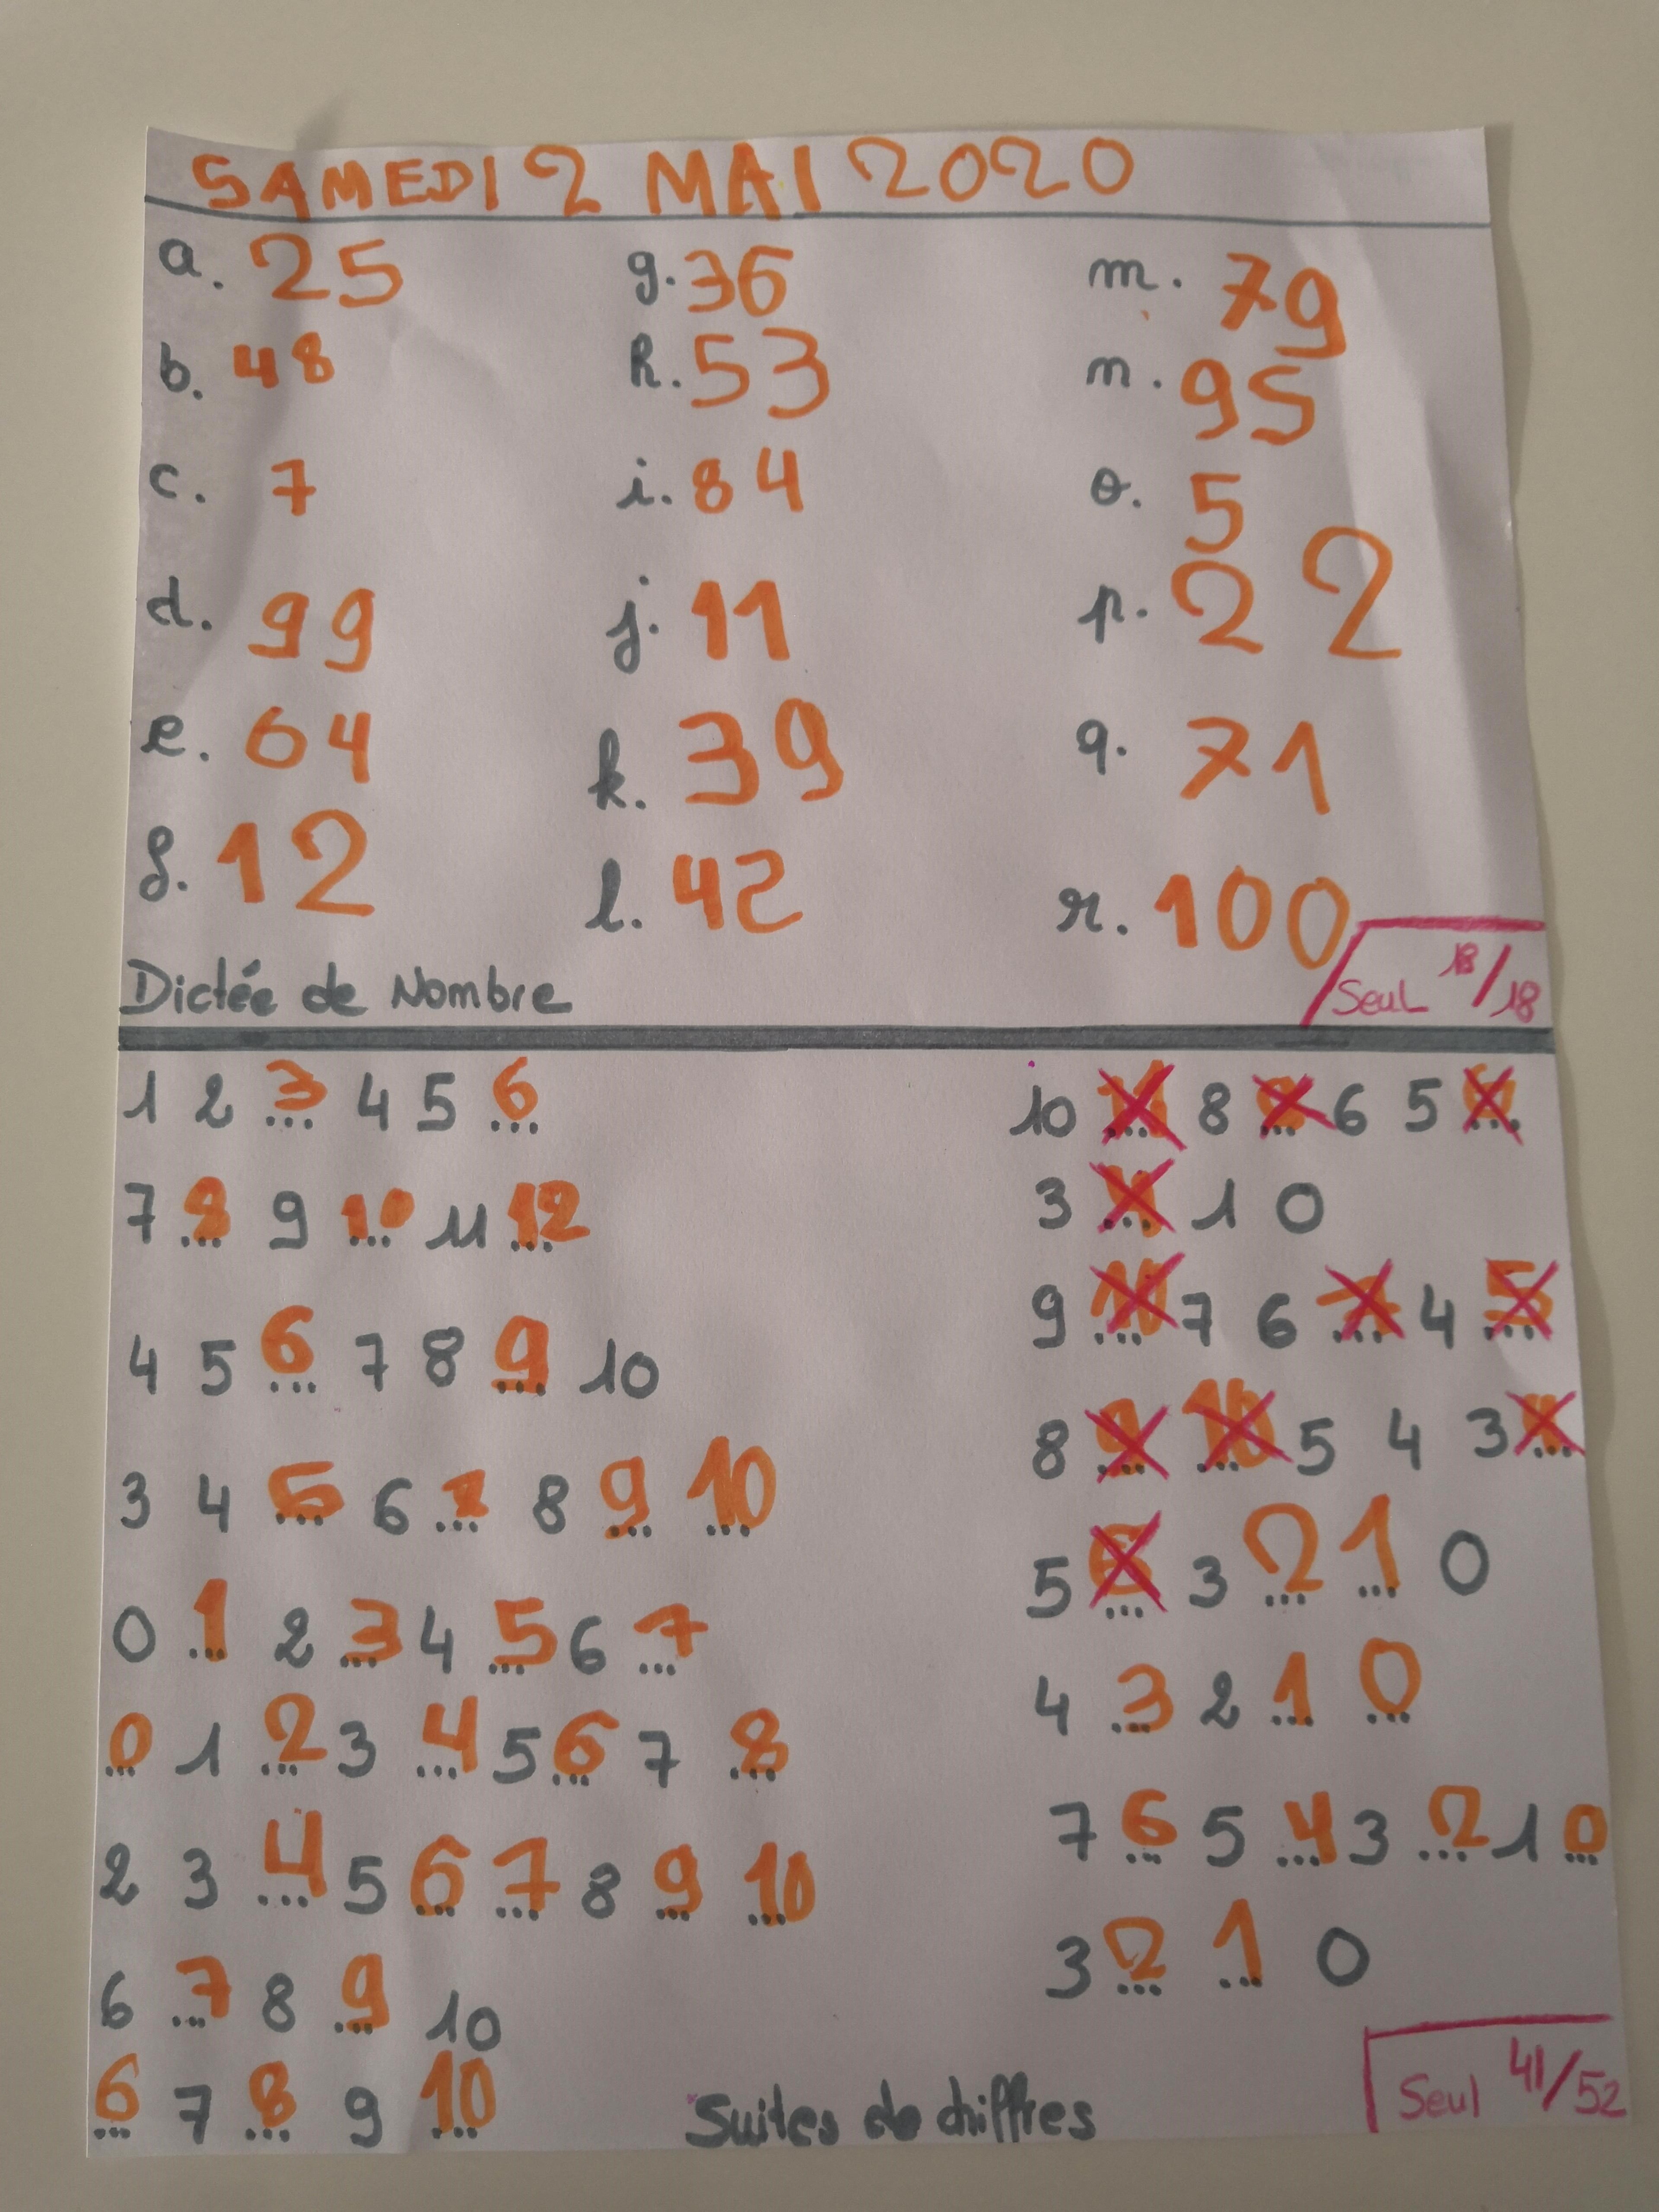 SAMEDI 2 MAI 2020
a. 25
b. 48
c. 7
d. 99
e. 64
f. 12
g. 36
h. 53
i. 84
j. 11
k. 39
l. 42
m. 79
n. 95
o. 5
p. 22
q. 71
r. 100
Dictée de Nombre
Seul 18/18
1 2 3 4 5 6
7 8 9 10 11 12
4 5 6 7 8 9 10
3 4 5 6 7 8 9 10
0 1 2 3 4 5 6 7
0 1 2 3 4 5 6 7 8
2 3 4 5 6 7 8 9 10
6 7 8 9 10
6 7 8 9 10
10 8 6 5
3 1 0
9 10 7 6 4 5
8 9 10 5 4 3
5 6 3 2 1 0
4 3 2 1 0
7 6 5 4 3 2 1 0
3 2 1 0
Suites de chiffres
Seul 41/52